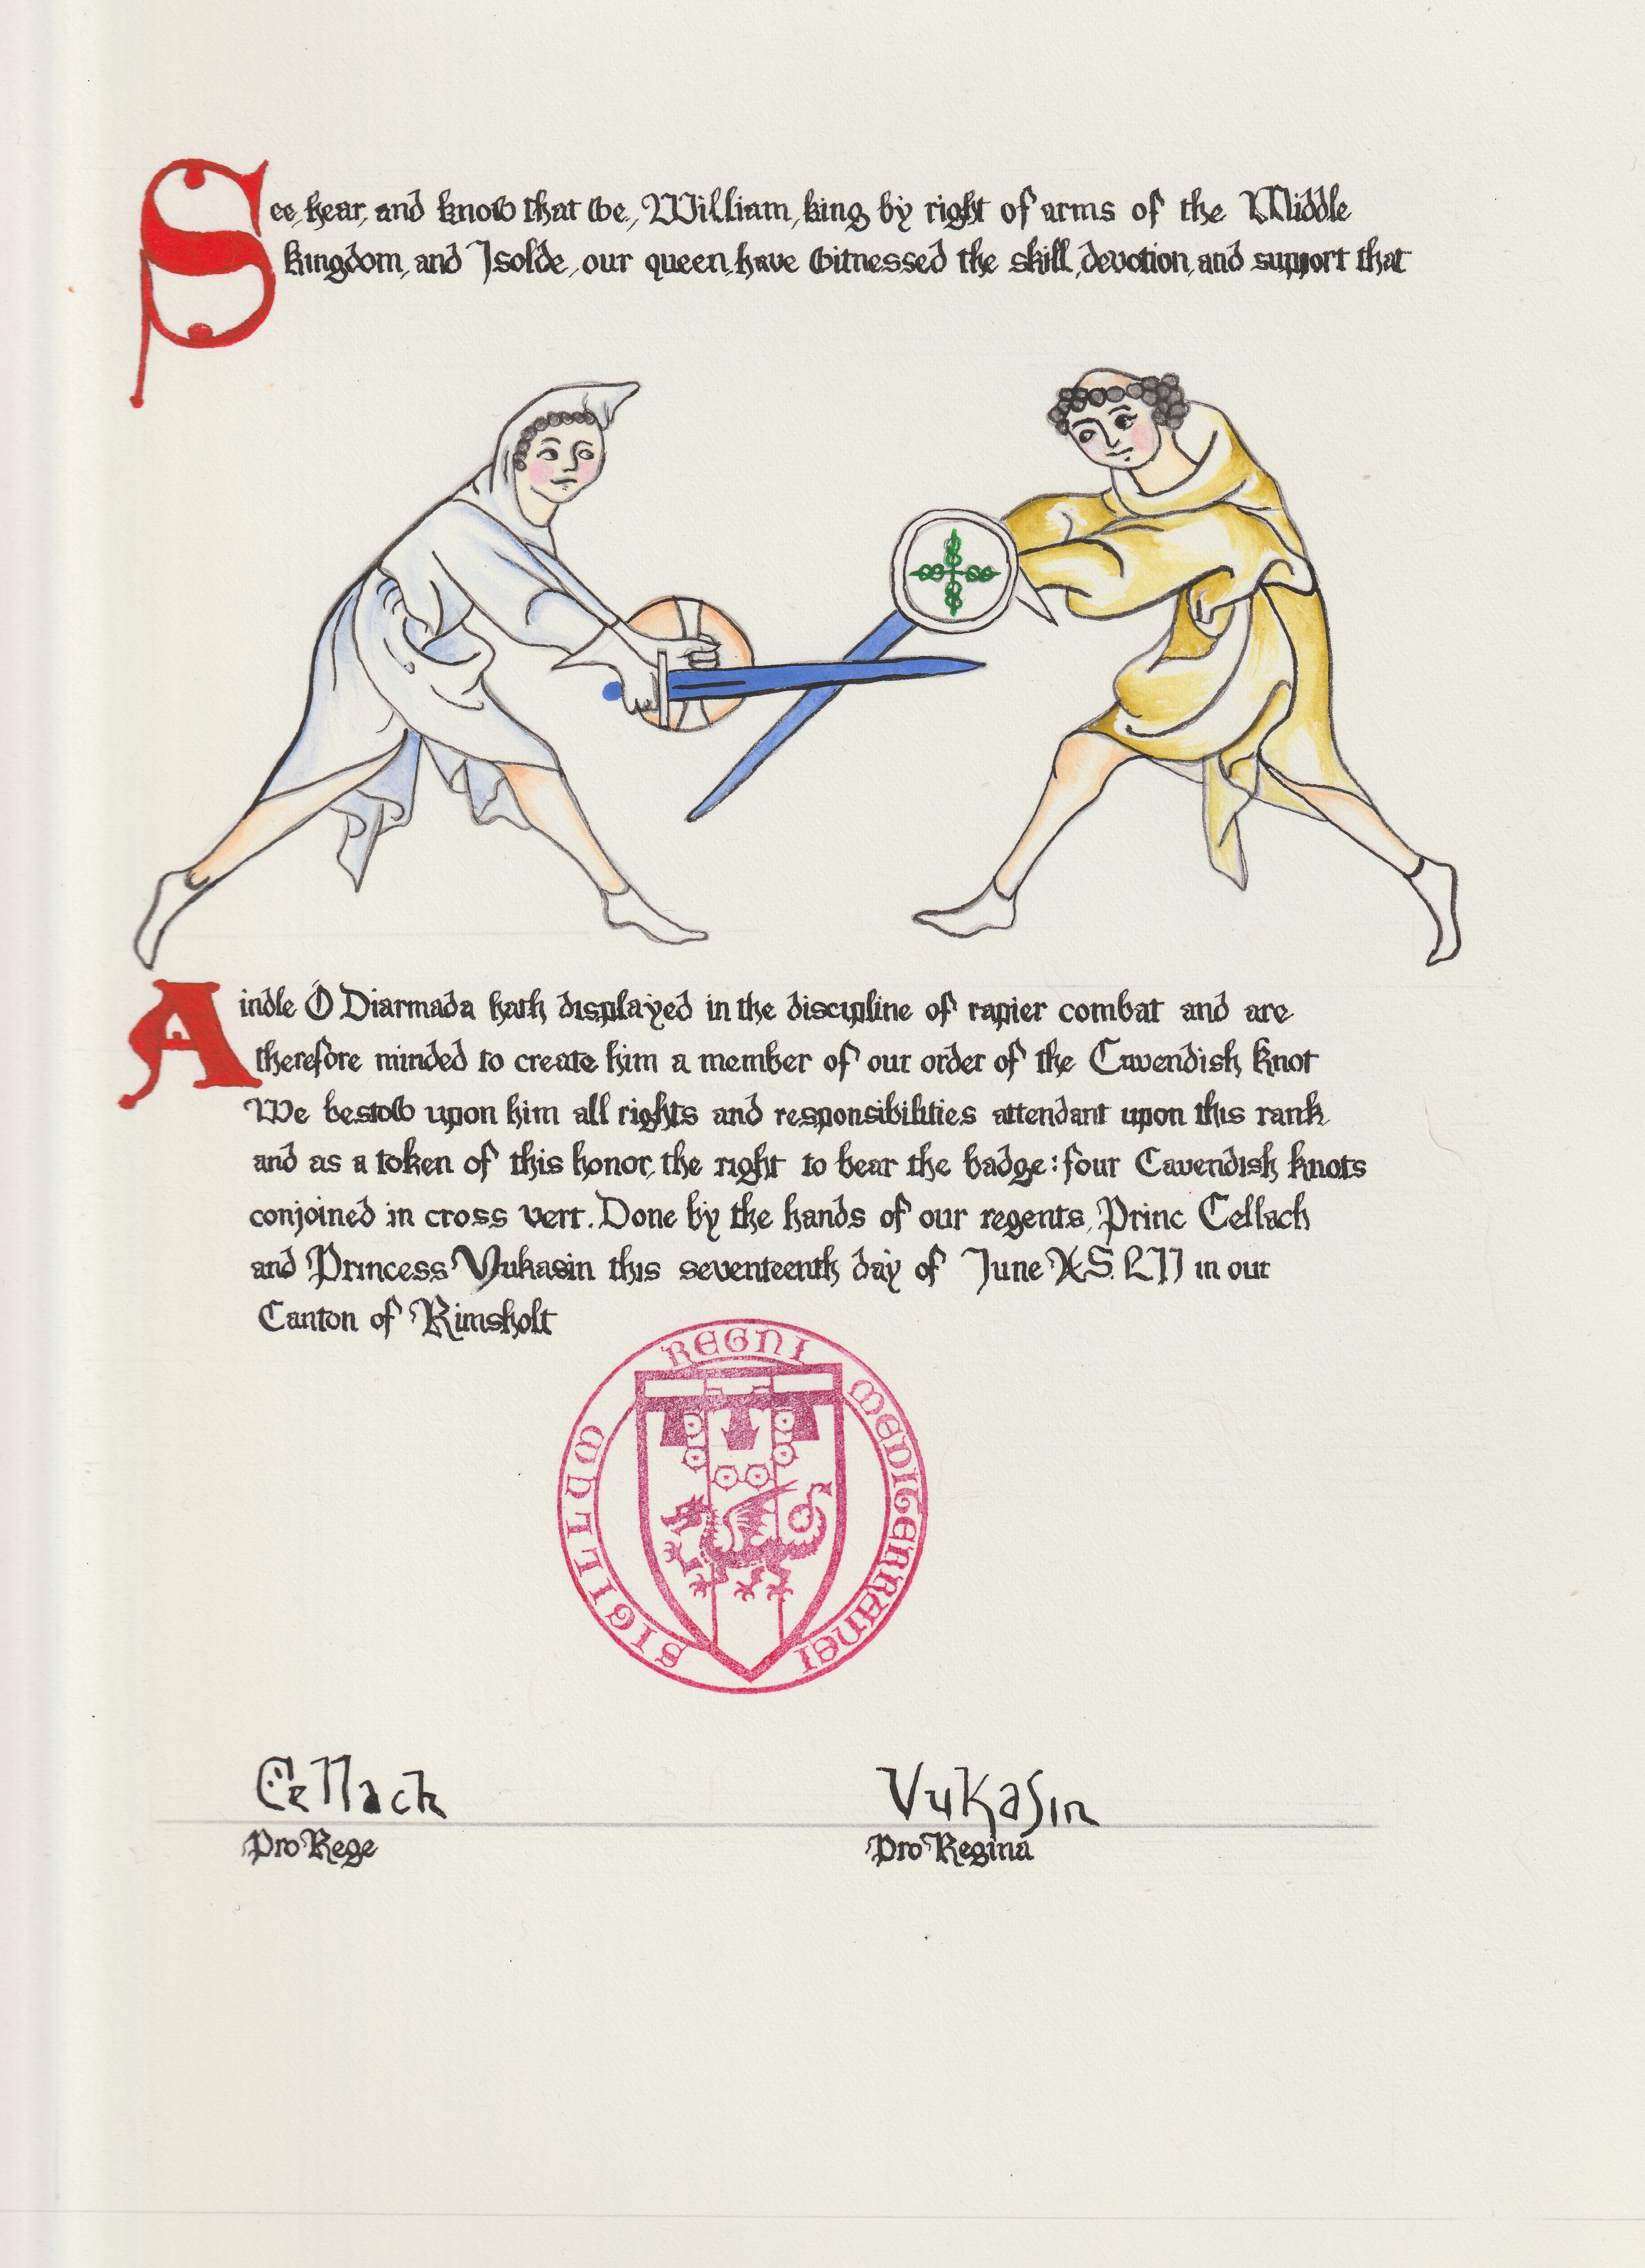 See, hear, and know that we, William, king by right of arms of the Middle
kingdom, and Isolde, our queen, have witnessed the skill, devotion, and support that
Aindle Ó Diarmada hath displayed in the discipline of rapier combat and are
therefore minded to create him a member of our order of the Cavendish Knot
We bestow upon him all rights and responsibilities attendant upon this rank
and as a token of this honor, the right to bear the badge: four Cavendish knots
conjoined in cross vert. Done by the hands of our regents, Princ Cellach
and Princess Vukasin this seventeenth day of June A.S. LII in our
Canton of Rimsholt
SIGILLUM REGNI MEDITERRANEI
Cellach Vukasin
Pro Rege Pro Regina